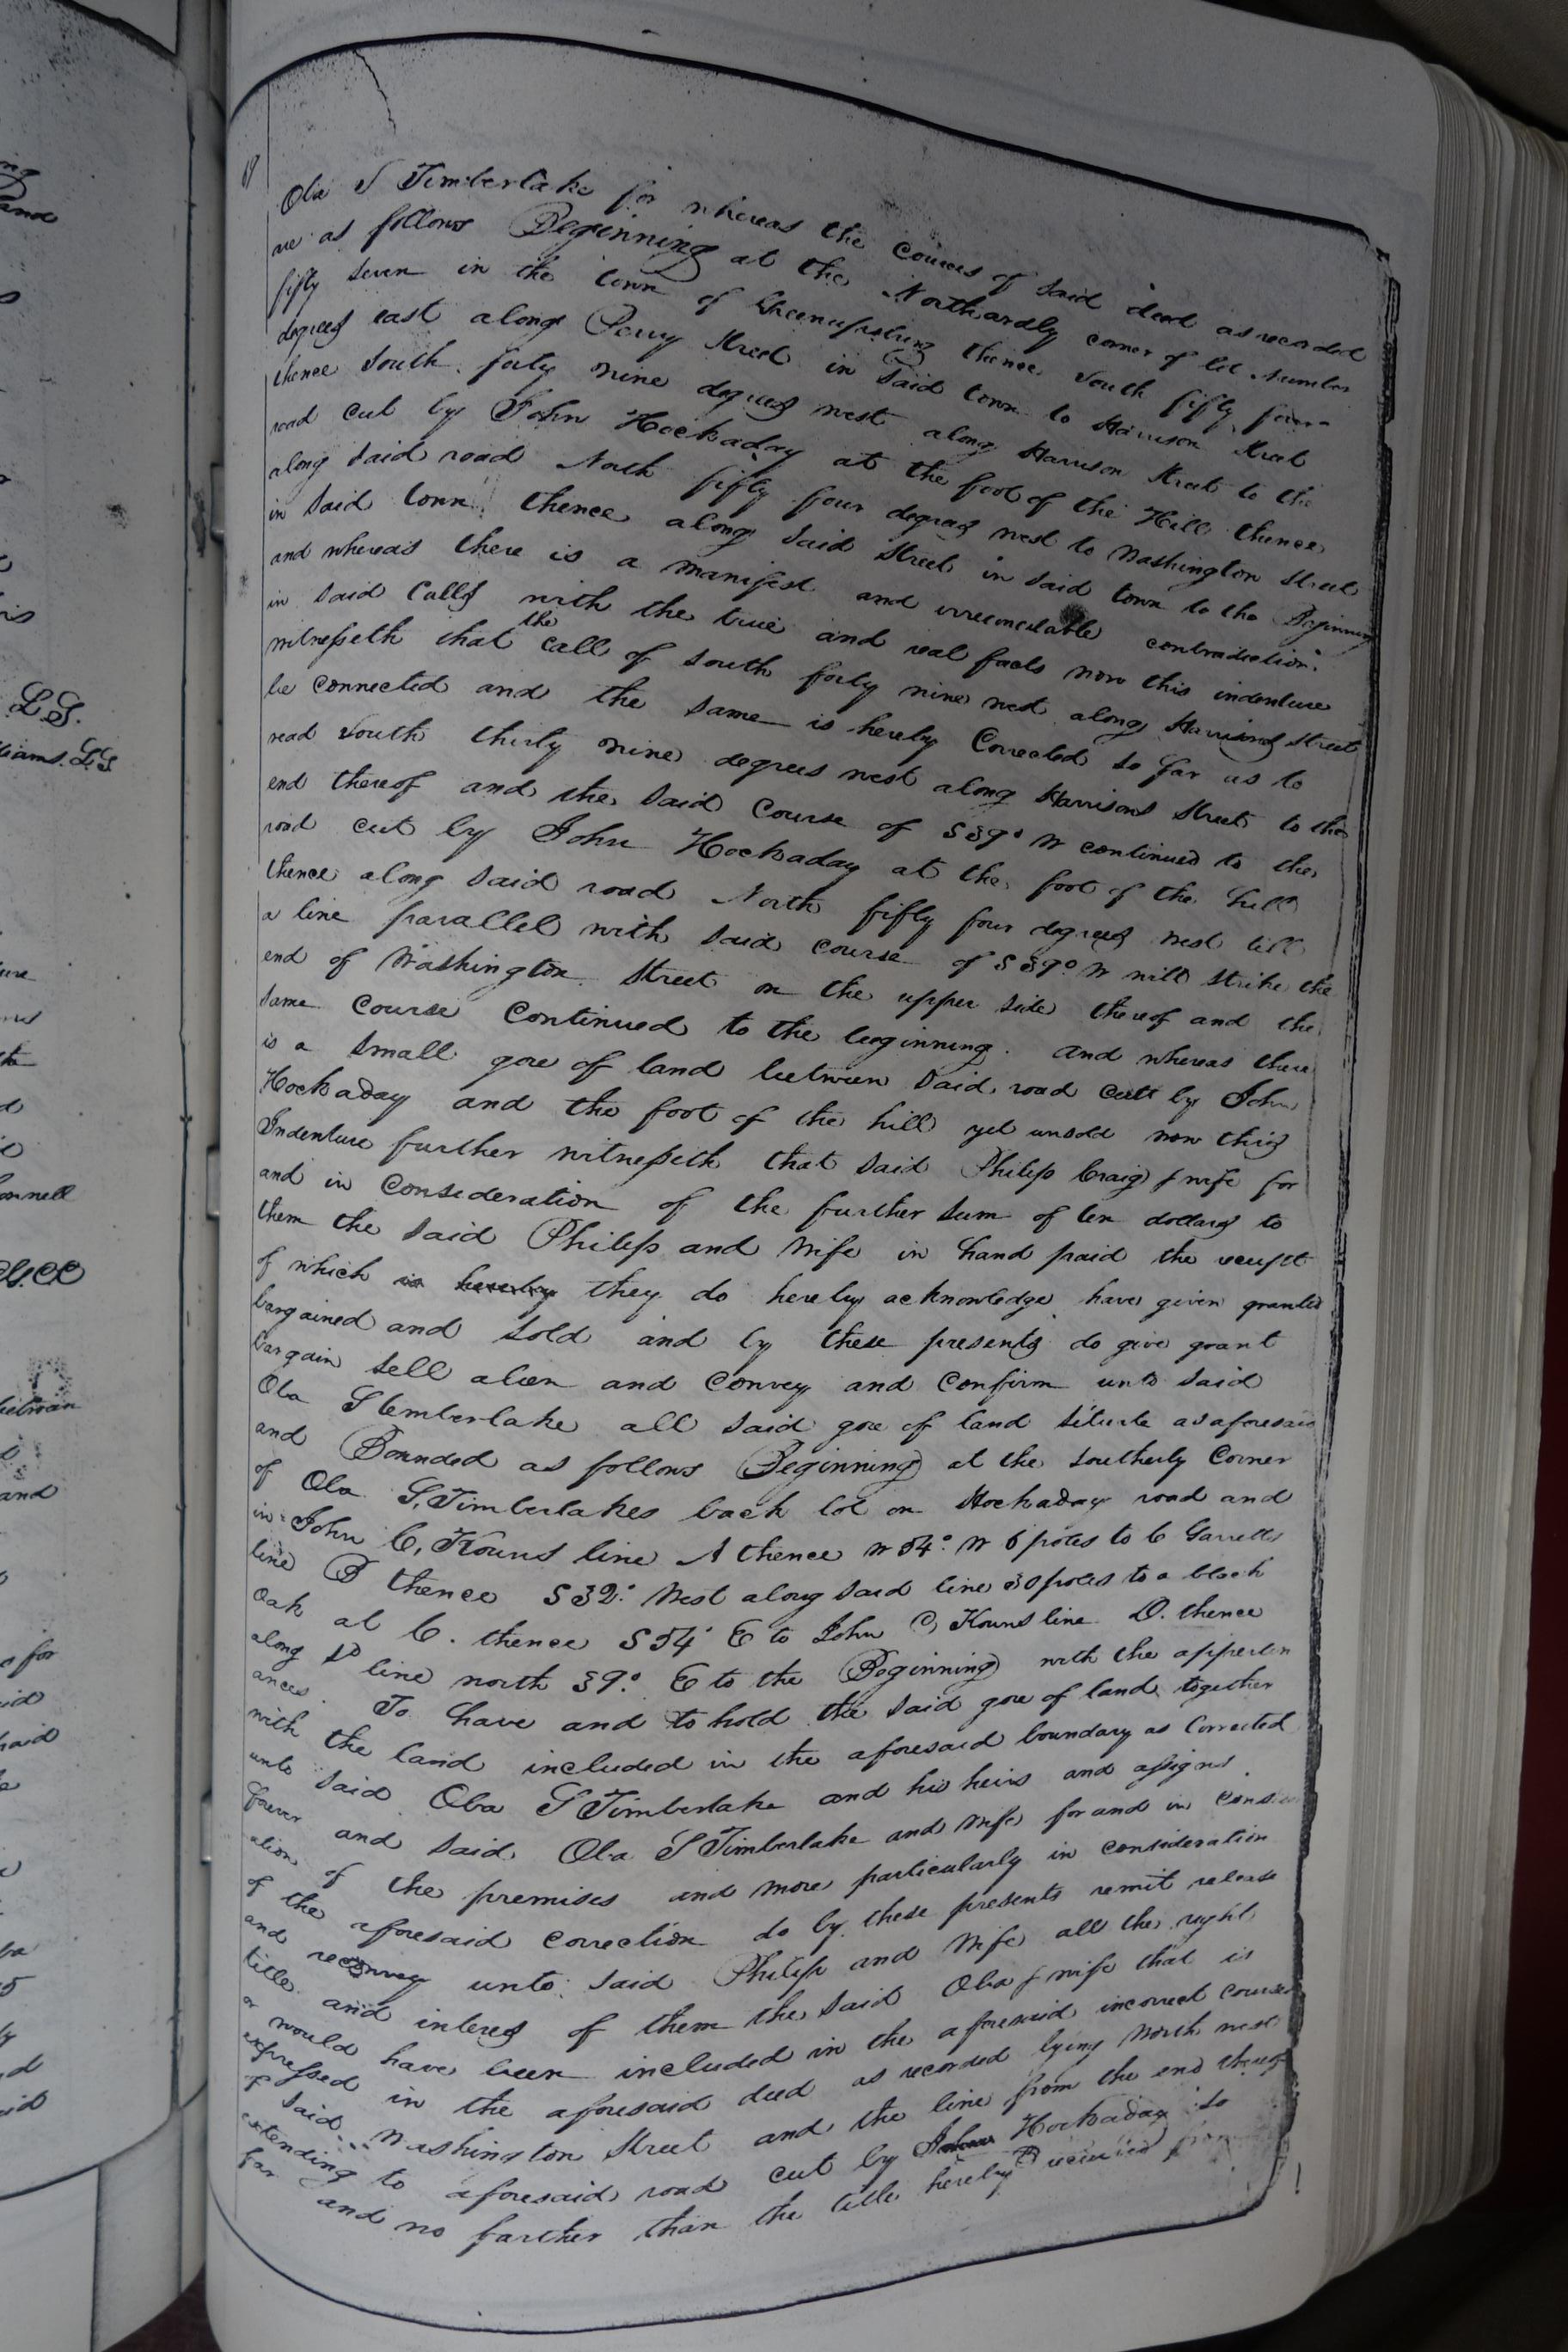 Oba S Timberlake for whereas the Courses of said deed as recorded
are as follows Beginning at the Northwardly corner of lot number
fifty seven in the town of Greenupsburg thence South fifty four
degrees east along Perry Street in said town to Harrison Street
thence South forty nine degrees west along Harrison Street to the
road cut by John Hockaday at the foot of the Hill thence
along said road North fifty four degrees west to Washington Street
in said town thence along said Street in said town to the Beginning
and whereas there is a manifest and irreconcilable contradiction
in said Calls with the true and real facts now this indenture
witnesseth that the call of South forty nine west along Harrisons Street
be connected and the same is hereby Corrected so far as to
read South thirty nine degrees west along Harrisons Street to the
end thereof and the said Course of S 39° W continued to the
road cut by John Hockaday at the foot of the hill
thence along said road North fifty four degrees West till
a line parallel with said course of S 39° W will strike the
end of Washington Street on the upper side thereof and the
same course continued to the beginning. and whereas there
is a small gore of land between said road cut by John
Hockaday and the foot of the hill yet unsold now this
Indenture further witnesseth that said Philip Craig & wife for
and in Consideration of the further sum of ten dollars to
them the said Philip and Wife in hand paid the receipt
of which is hereby they do hereby acknowledge have given granted
bargained and sold and by these presents do give grant
bargain sell alien and Convey and Confirm unto said
Oba S Temberlake all said gore of land situate as aforesaid
and Bounded as follows Beginning at the Southerly Corner
of Oba S, Timberlakes back lot on Hockaday road and
in John C, Kouns line A thence N 54° W 6 poles to C Garretts
line B thence S 32° West along said line 30 poles to a black
Oak at C. thence S 54° E to John C Kouns line D. thence
along sd line north 39° E to the Beginning with the apperten
ances. To have and to hold the said gore of land together
with the land included in the aforesaid boundary as Corrected
unto said Oba S Timberlake and his heirs and assigns
forever and said Oba S Timberlake and Wife for and in Consider
ation of the premises and more particularly in consideration
of the aforesaid correction do by these presents remit release
and reconvey unto said Philip and Wife all the right
title and interes of them the said Oba & wife that is
or would have been included in the aforesaid incorrect courses
expressed in the aforesaid deed as recorded lying North west
of said Washington Street and the line from the end thereof
extending to aforesaid road cut by John Hockaday so
far and no farther than the title hereby received from